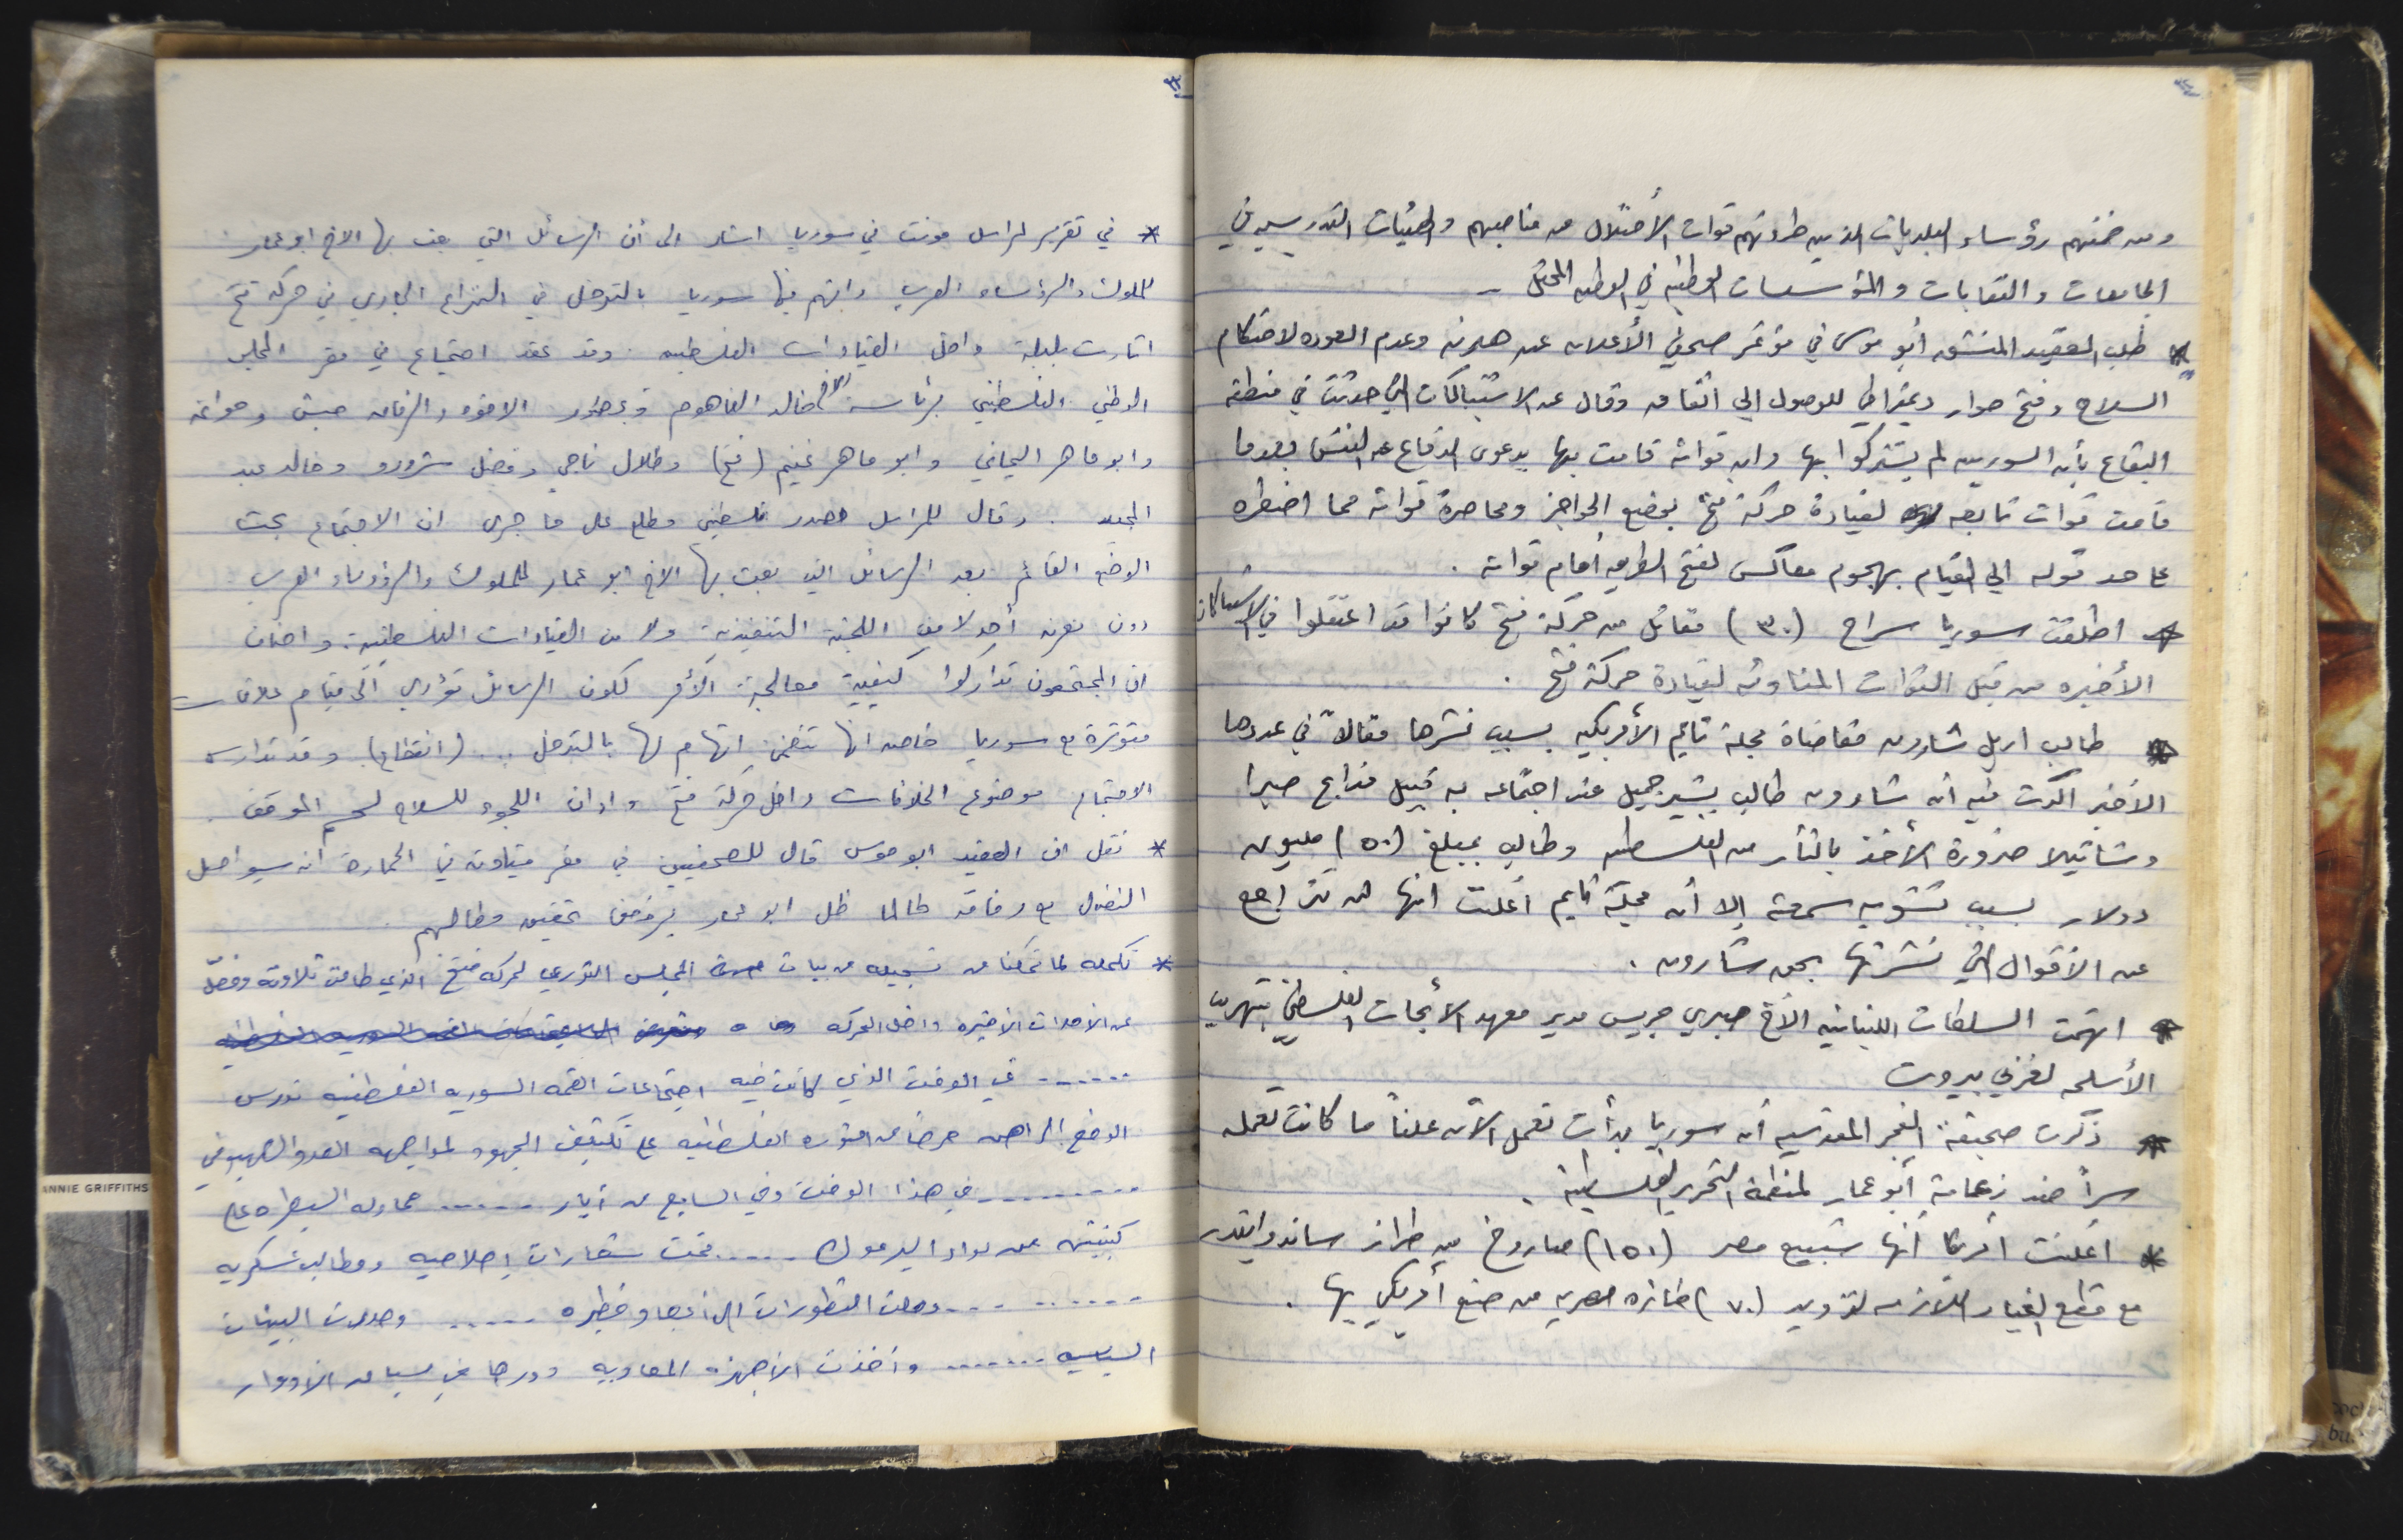 ومن ضمنهم رؤساء البلديات الذين طردتهم قوات الأحتلال من مناصبهم والهيئات التدريسيه في
الجامعات والنقابات والمؤسسات الوطنيه في الوطن المحتل -
* طلب العقيد المنشق أبو موسى في مؤتمر صحفي الأعلان عن هدنه وعدم العوده لاحتكام
السلاح وفتح حوار ديمقراطي للوصول الي اتفاق وقال عن الاشتباكات التي حدثت في منطقة
البقاع بأن السوريين لم يشتركوا بها وان قواته قامت بها بدعوى الدفاع عن النفس بعدما
قامت قوات تابعه لقيادة حركة فتح بوضع الحواجز ومحاصرة قواته مما اضطره
على حد قوله الي القيام بهجوم معاكس لفتح الطريق أمام قواته .
* اطلقت سوريا سراح (٣٠) مقاتل من حركة فتح كانوا قد اعتقلوا في الاشتباكات
الأخيره من قبل القوات المناوئه لقيادة حركة فتح .
* طالب اريل شارون مقاضاة مجلة تايم الأمريكيه بسبب نشرها مقالاً في عددها
الأخير اكدت فيه أن شارون طالب بشير جميل عند اجتماعه به قبيل مذابح صبرا
وشاتيلا ضرورة الأخذ بالثأر من الفلسطين وطالب بمبلغ (٥٠) مليون
دولار بسبب تشويه سمعته إلا أن مجلة تايم اعلنت انها لن تتراجع
عن الأقوال التي نشرتها بحق شارون .
* اتهمت السلطات اللبنانيه الأخ صبري جريس مدير معهد الأبحاث الفلسطيني بتهريب
الأسلحه لغربي بيروت
* ذكرت صحيفة الفجر المقدسيه أن سوريا بدأت تعمل الآن علناً ما كانت تعمله
سراً ضد زعامة أبو عمار لمنظمة التحرير الفلسطينية .
* اعلنت أمريكا أنها ستبيع مصر (١٥٠) صاروخ من طراز سايدوايندر
مع قطع الغيار اللازمه لتزويد (٧٠) طائره مصريه من صنع أمريكي بها .
* في تقرير لمراسل مونت في سوريا اشار الى أن الرسائل التي بعث بها الاخ ابو عمار
للملوك والرؤساء العرب واتهم فيها سوريا بالتدخل في النزاع الجاري في حركة فتح
اثارت بلبلة داخل القيادات الفلسطينيه . وقد عقد اجتماع في مقر المجلس
الوطني الفلسطيني برئاسة الاخ خالد الفاهوم وبحضور الاخوه والرفاق حبش وحواتمه
وابو ماهر اليماني وابو ماهر غنيم (فتح) وطلال ناجي وفضل شرورو وخالد عبد
المجيد . وقال للمراسل مصدر فلسطيني مطلع على ما جرى ان الاجتماع بحث
الوضع القائم بعد الرسائل التي بعث بها الاخ ابو عمار للملوك والرؤساء العرب
دون معرفة أحد لا من اللجنة التنفيذية ولا من القيادات الفلسطينية . واضاف
ان المجتمعون تداركوا كيفية معالجة الأمر لكون الرسائل تؤدي الى قيام علاقات
متوترة مع سوريا خاصه انها تتضمن اتهام لها بالتدخل ... (انقطاع) وقد تدارس
الاجتماع موضوع الخلافات داخل حركة فتح وادان اللجوء للسلاح لحسم الموقف .
* نقل ان العقيد ابو موسى قال للصحفيين في مقر قيادته في الحماره انه سيواصل
النضال مع رفاقه طالما ظل ابو عمار يرفض تحقيق مطالبهم .
* تكمله لما تمكنا من تسجيله من بيان المجلس الثوري لحركه فتح الذي طالت تلاوته وفصّل
عن الاحداث الاخيره داخل الحركه
...... في الوقت الذي كانت فيه اجتماعات القمه السوريه الفلسطينيه تدرس
الوضع الراهن حرصا من الثوره الفلسطينيه على تكثيف الجهود لمواجهه العدو الصهيوني
......... في هذا الوقت وفي السابع من أيار ...... محاوله السيطره على
كتيبتين من لواء اليرموك ..... تحت شعارات إصلاحيه ومطالب عسكريه
........... وصلت التطورات الى ابعاد خطيره ...... وصدرت البيانات
السياسيه ....... وأخذت الاجهزه المعاديه دورها في سياق الادوار